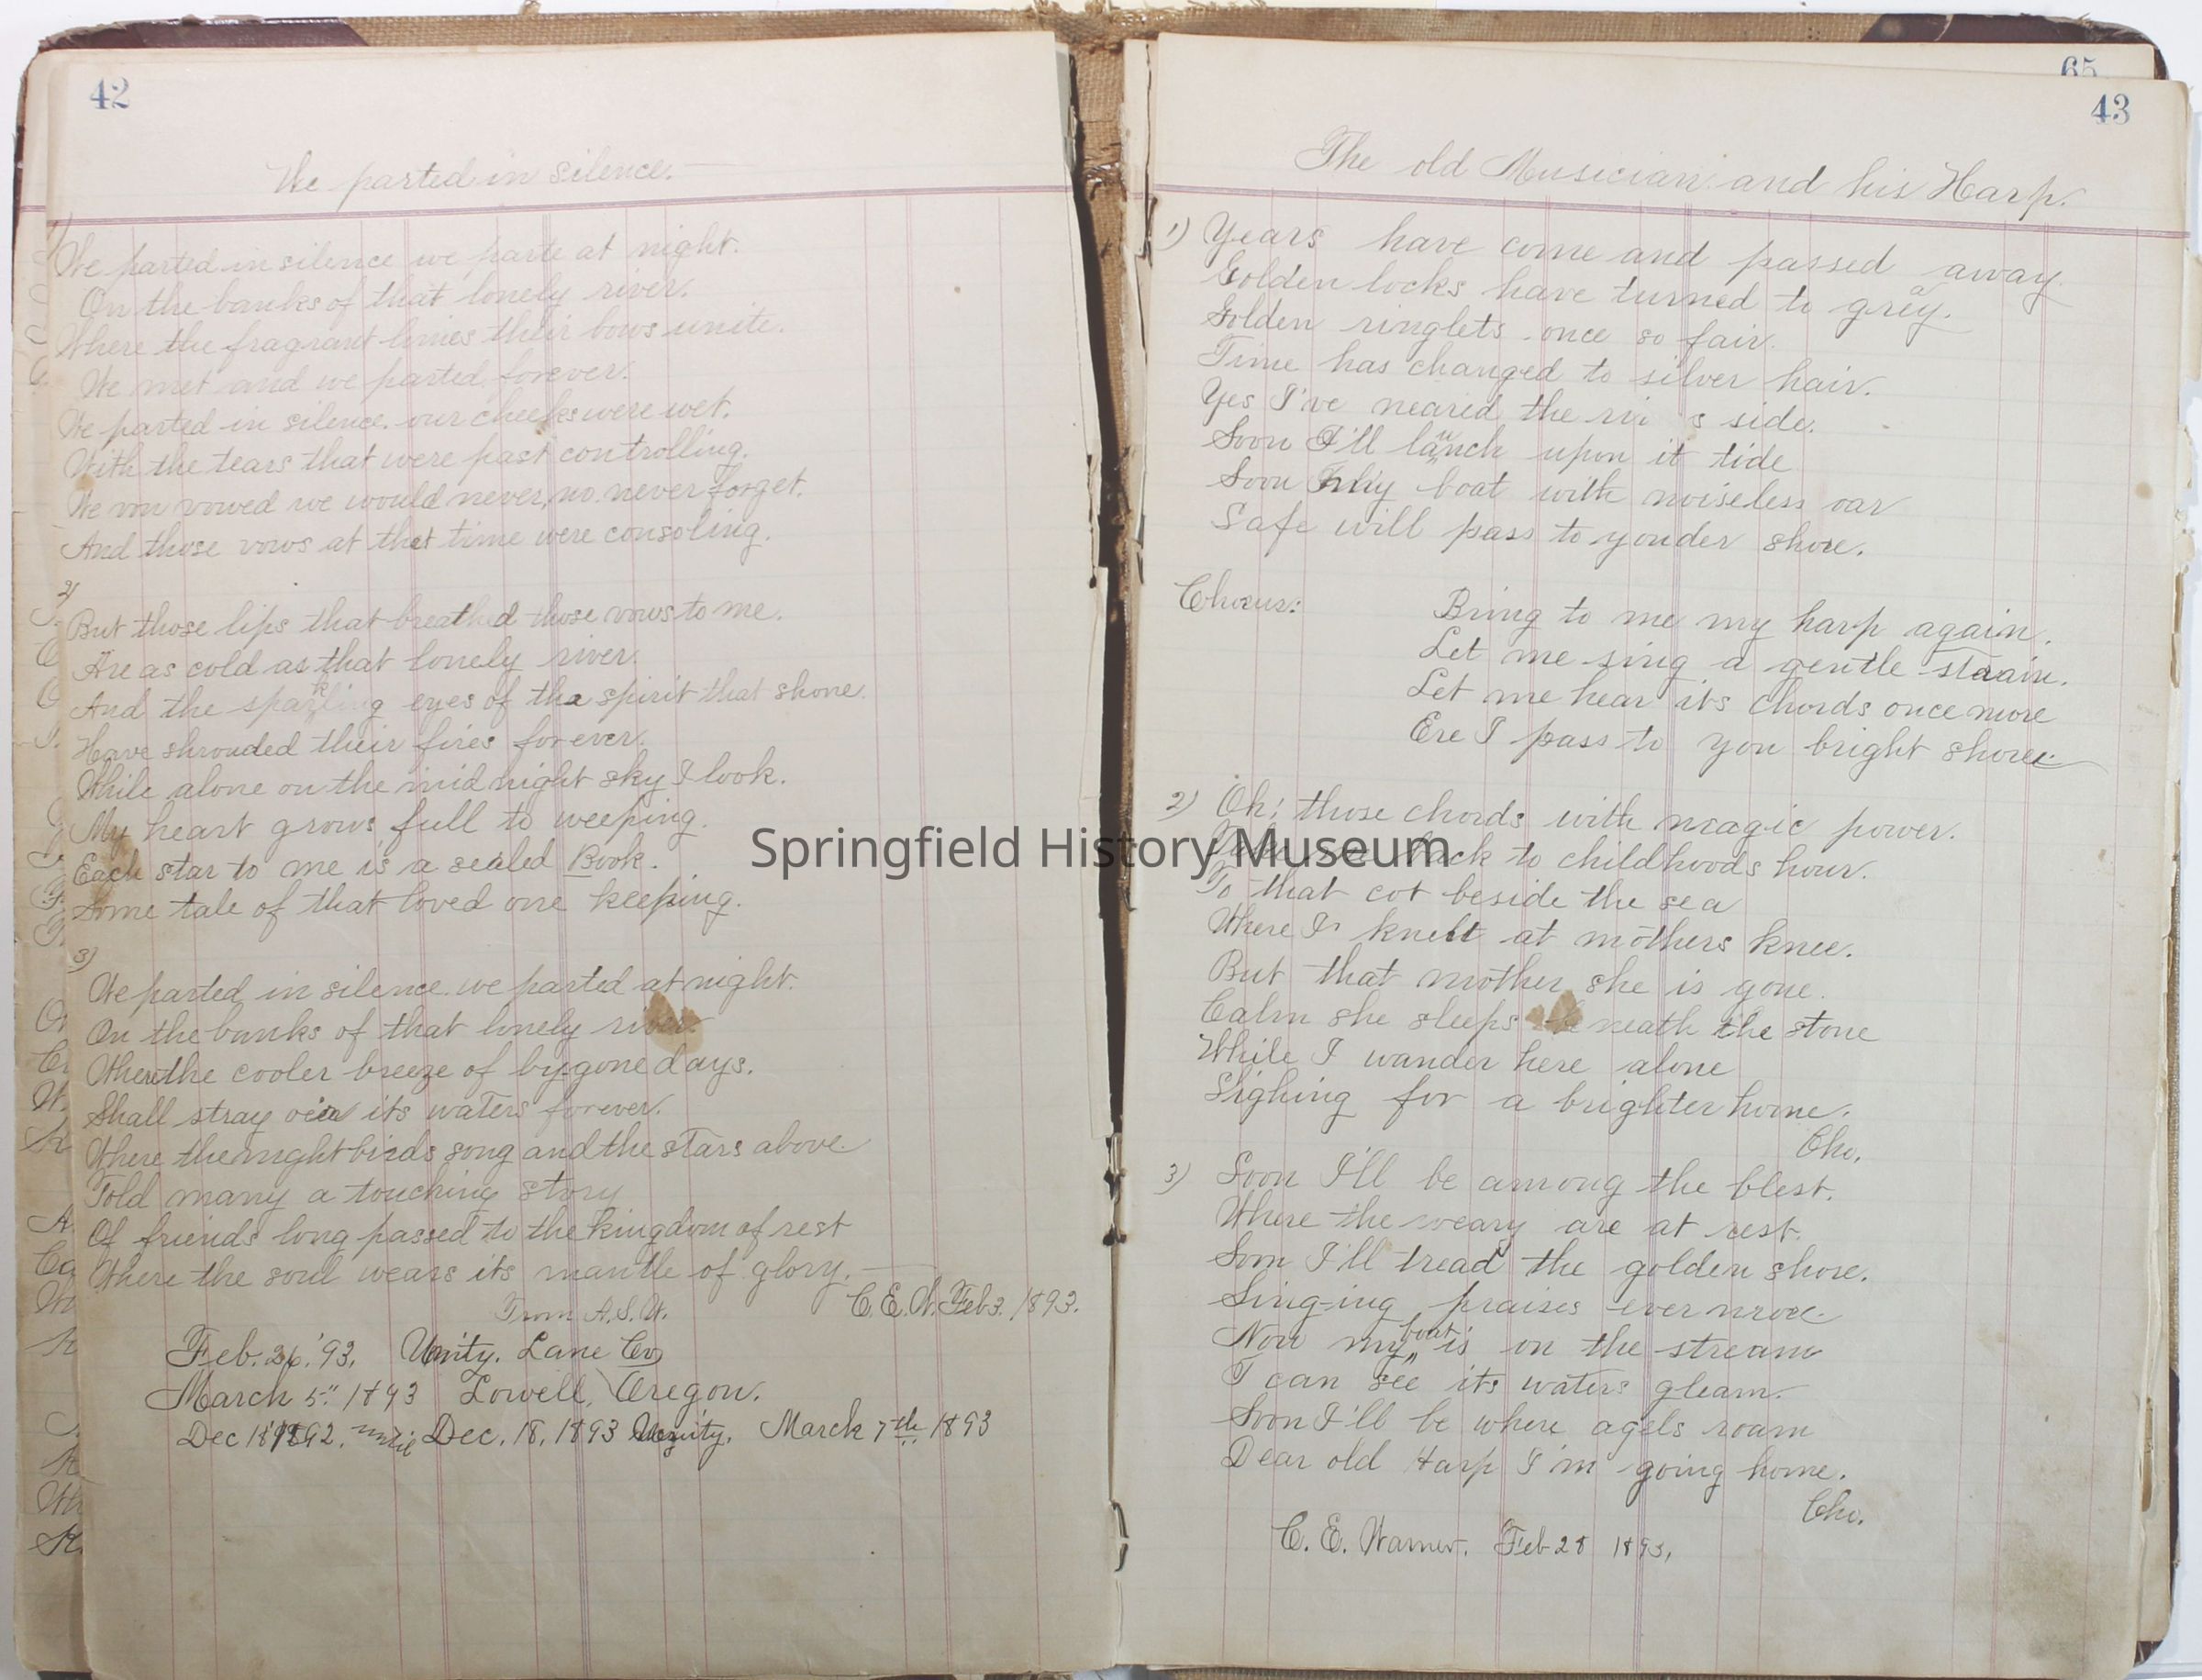 42
We parted in silence.
We parted in silence we parte at night.
On the banks of that lonely river.
Where the fragrant limes their bows unite.
We met and we parted forever.
We parted in silence. our cheeks were wet.
With the tears that were past controlling.
We vowed we would never, no never forget.
And those vows at that time were consoling.
2)
But those lips that breathed those vows to me.
Are as cold as that lonely river.
And the sparkling eyes of the spirit that shone.
Have shrouded their fires forever.
While alone on the midnight sky I look.
My heart grows full to weeping.
Each star to me is a sealed Book.
Some tale of that loved one keeping.
3)
We parted in silence. we parted at night.
On the banks of that lonely river.
Where the cooler breeze of bygone days.
Shall stray its waters forever.
Where the night birds song and the stars above
Told many a touching story
Of friends long passed to the kingdom of rest
Where the soul wears its mantle of glory.
From A.S.W. C.E.W. Feb 3. 1893.
Feb. 26. '93. Unity. Lane Co
March 5" 1893 Lowell, Oregon.
Dec until Dec. 18, 1893 Unity. March 7th 1893
65
43
The old Musician and his Harp.
1) Years have come and passed away.
Golden locks have turned to gray.
Golden ringlets once so fair.
Time has changed to silver hair.
Yes I've neared the side.
Soon I'll launch upon it tide
Soon my boat with noiseless oar
Safe will pass to yonder shore.
Chorus: Bring to me my harp again.
Let me sing a gentle strain.
Let me hear its chords once more
Ere I pass to yon bright shore
2) Oh! those chords with magic power.
Take me back to childhoods hour.
To that cot beside the sea
Where I knelt at mothers knee.
But that mother she is gone.
Calm she sleeps beneath the stone
While I wander here alone
Sighing for a brighter home.
Cho.
3) Soon I'll be among the blest.
Where the weary are at rest.
Soon I'll tread the golden shore.
Sing-ing praises evermore
Now my boat is on the stream
I can see its waters gleam.
Soon I'll be where agels roam
Dear old Harp I'm going home.
Cho.
C. E. Warner. Feb 28 1893.
Springfield History Museum